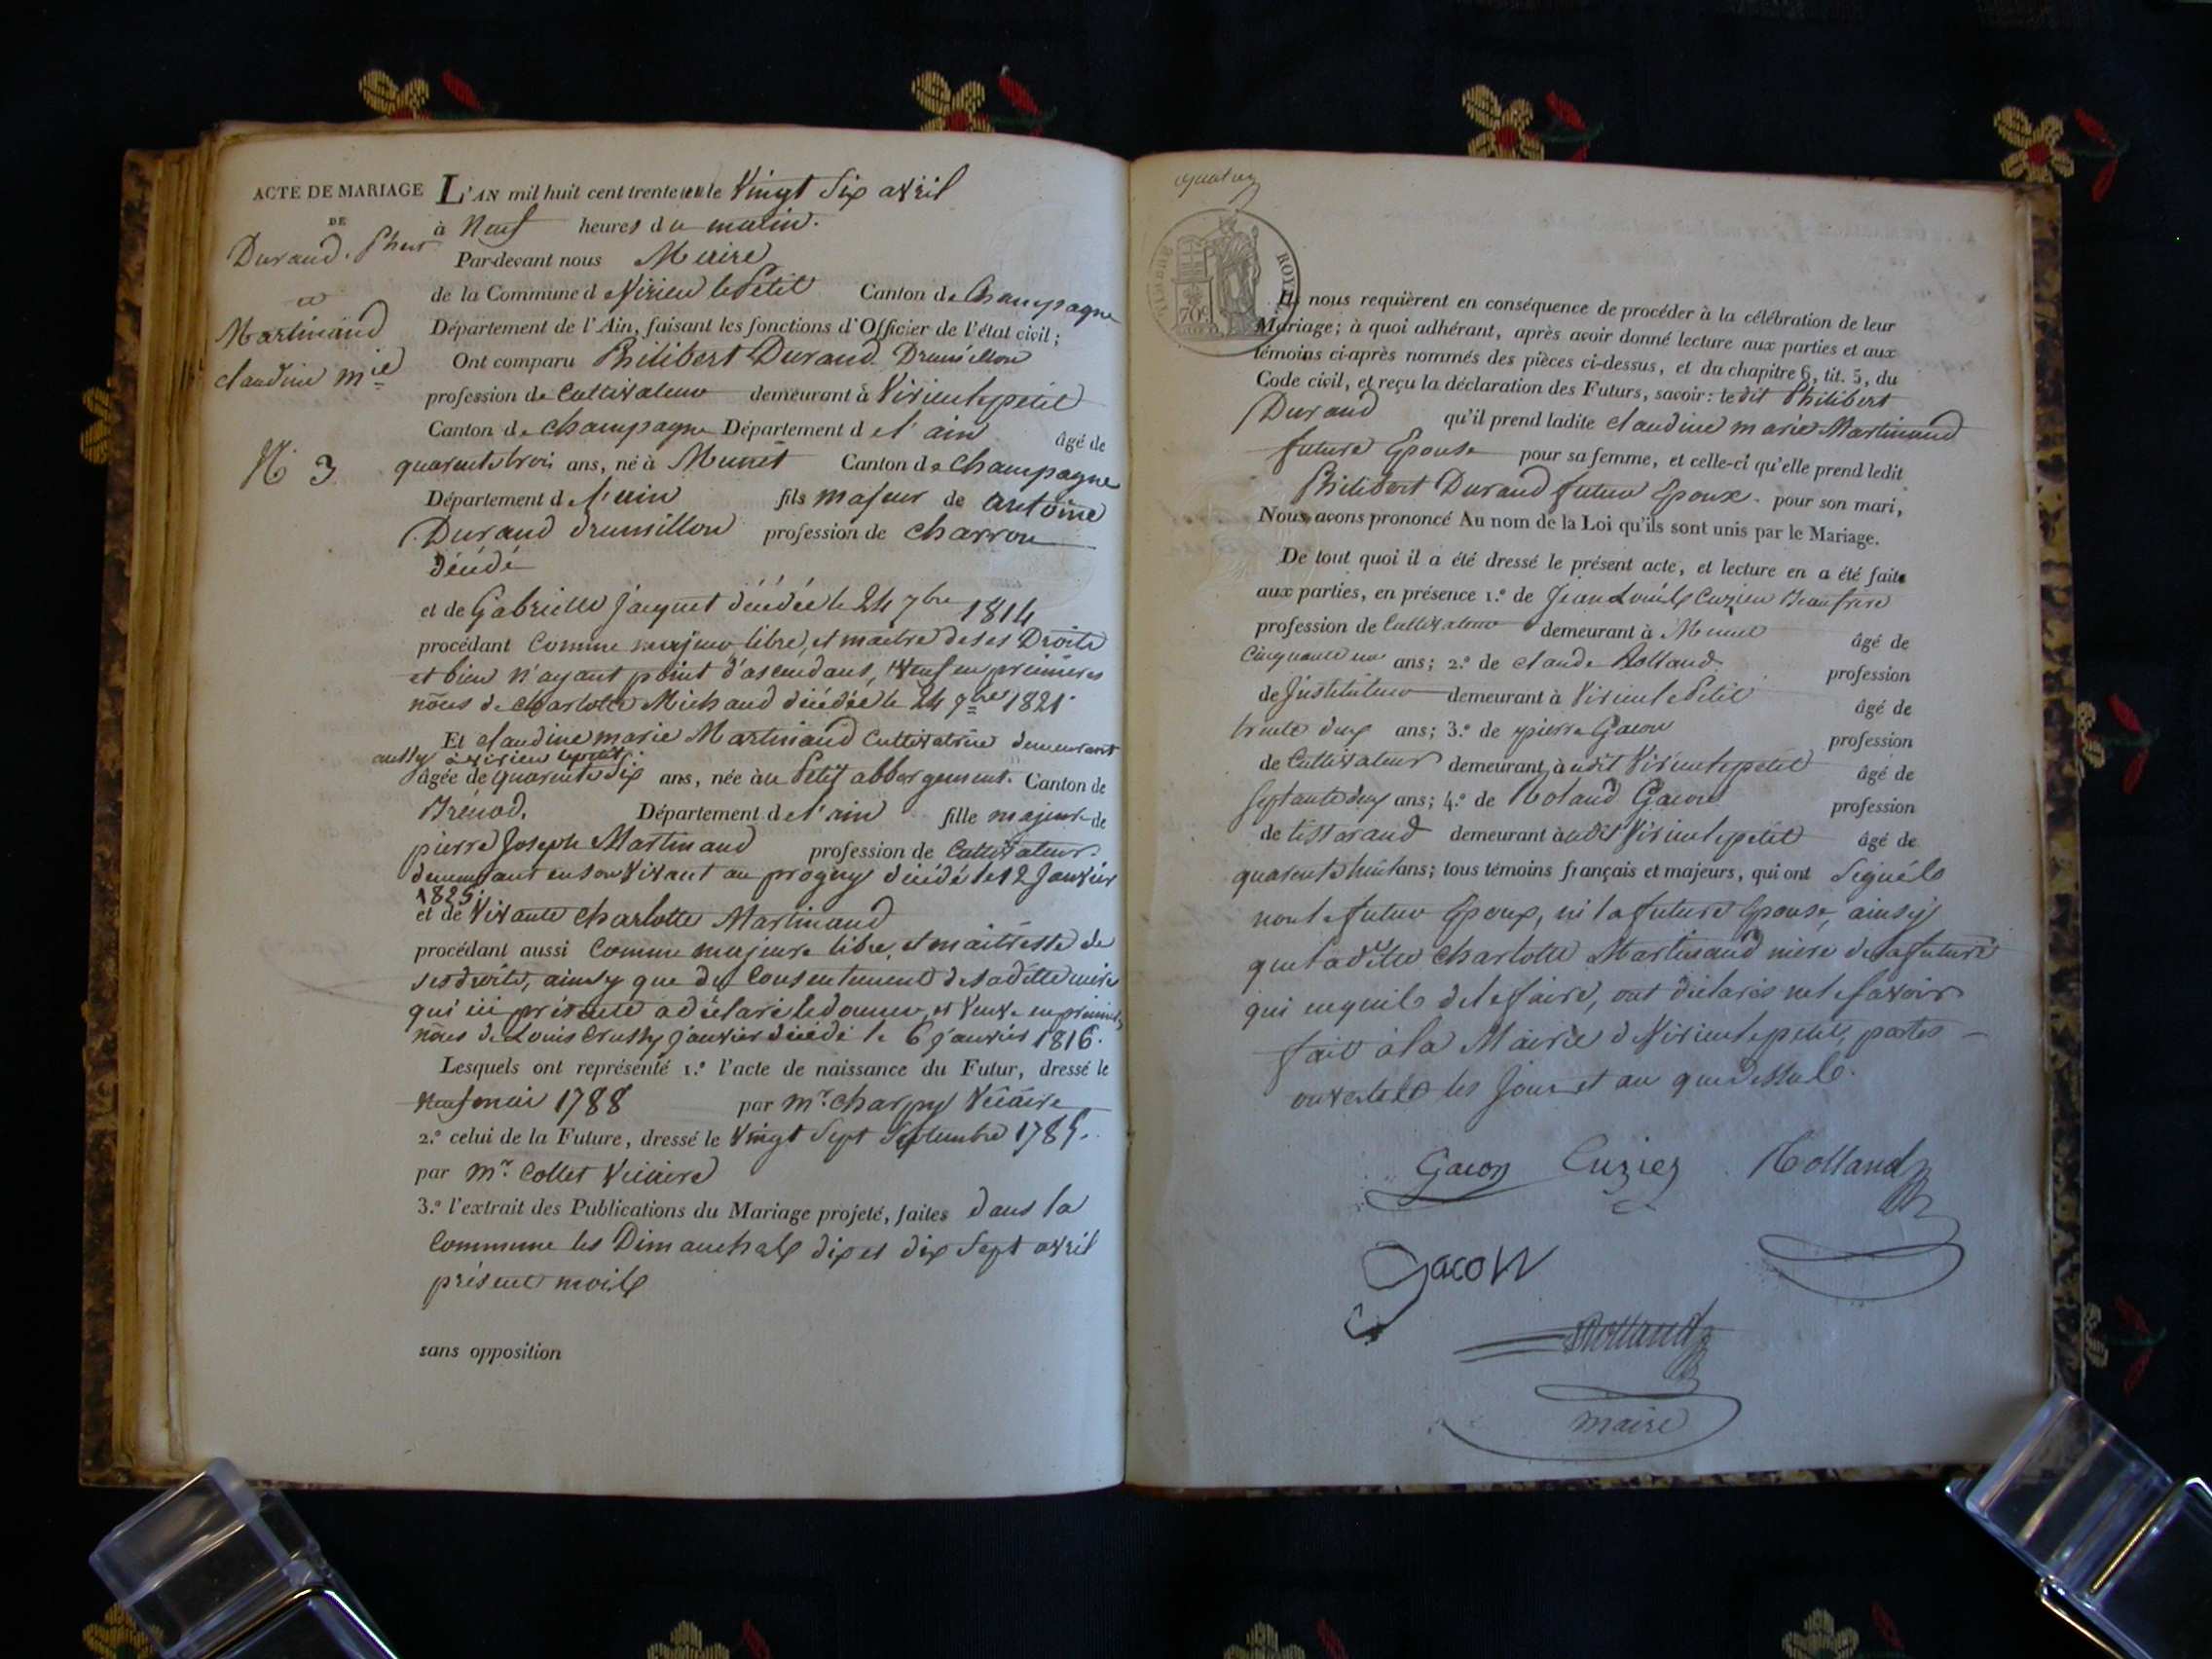 ACTE DE MARIAGE
DE
Durand. Phert
et
Martinand
claudine mie
N° 3
L'AN mil huit cent trente un le Vingt Six avril
à Neuf heures du matin.
Par-devant nous Maire
de la Commune de Virieu le Petit Canton de Champagne
Département de l'Ain, faisant les fonctions d'Officier de l'état civil;
Ont comparu Philibert Durand Drumillon
profession de Cultivateur demeurant à Virieu le petit
Canton de Champagne Département de l'ain âgé de
quarente trois ans, né à Munet Canton de Champagne
Département de l'ain fils majeur de antoine
Durand drumillon profession de charron
décédé
et de Gabrielle Jacquet décédée le 24 7bre 1814
procédant Comme majeur libre, et maitre de ses Droits
et bien n'ayant point d'ascendans, Veuf en premières
nôces de charlotte Michaud décédée le 24 9bre 1821
Et claudine marie Martinand Cultivatrice demeurant
aussy à virieu le petit
âgée de quarente six ans, née à u Petit abbergement. Canton de
Brenod. Département de l'ain fille majeure de
pierre Joseph Martinand profession de Cultivateur.
demeurant en son Vivant au progny décédé le 12 Janvier
1825.
et de Vivante charlotte Martinand
procédant aussi Comme majeure libre, et maitresse de
ses droits, ainsy que du Consentement de sa ditte mère
qui ici présente a déclaré le donner, et Veuve en premières
nôces de Louis Crussy Janvier décédé le 6 janvier 1816.
Lesquels ont représenté 1.° l'acte de naissance du Futur, dressé le
Neuf mai 1788 par mr. charpy Vicaire
2.° celui de la Future, dressé le Vingt Sept Septembre 1785.
par mr. Collet Vicaire
3.° l'extrait des Publications du Mariage projeté, faites dans la
Commune les Dimanches dix et dix Sept avril
présent mois
sans opposition
quatre
TIMBRE ROYAL
70c
Ils nous requièrent en conséquence de procéder à la célébration de leur
Mariage; à quoi adhérant, après avoir donné lecture aux parties et aux
témoins ci-après nommés des pièces ci-dessus, et du chapitre 6, tit. 5, du
Code civil, et reçu la déclaration des Futurs, savoir: le dit Philibert
Durand qu'il prend ladite claudine marie Martinand
future Epouse pour sa femme, et celle-ci qu'elle prend ledit
Philibert Durand futur Epoux. pour son mari,
Nous avons prononcé Au nom de la Loi qu'ils sont unis par le Mariage.
De tout quoi il a été dressé le présent acte, et lecture en a été faite
aux parties, en présence 1.° de Jean Louis Cuzieu Beaufrere
profession de Cultivateur demeurant à Munet âgé de
Cinquante un ans; 2.° de claude Rolland profession
de Instituteur demeurant à Virieu le Petit âgé de
trente deux ans; 3.° de pierre Gacon profession
de Cultivateur demeurant à udit Virieu le petit âgé de
septante deux ans; 4.° de Roland Gacon profession
de tissarand demeurant à udit Virieu le petit âgé de
quarente huit ans; tous témoins français et majeurs, qui ont Signés
non le futur Epoux, ni la future Epouse, ainsy
que la dette charlotte Martinand mère de la future
qui enquis de le faire, ont déclarés ne le savoir
fait à la Mairie de Virieu le petit, portes
ouvertes les Jour et an que dessus.
Gacon Cuziez Rolland
Gacon
Rolland
maire